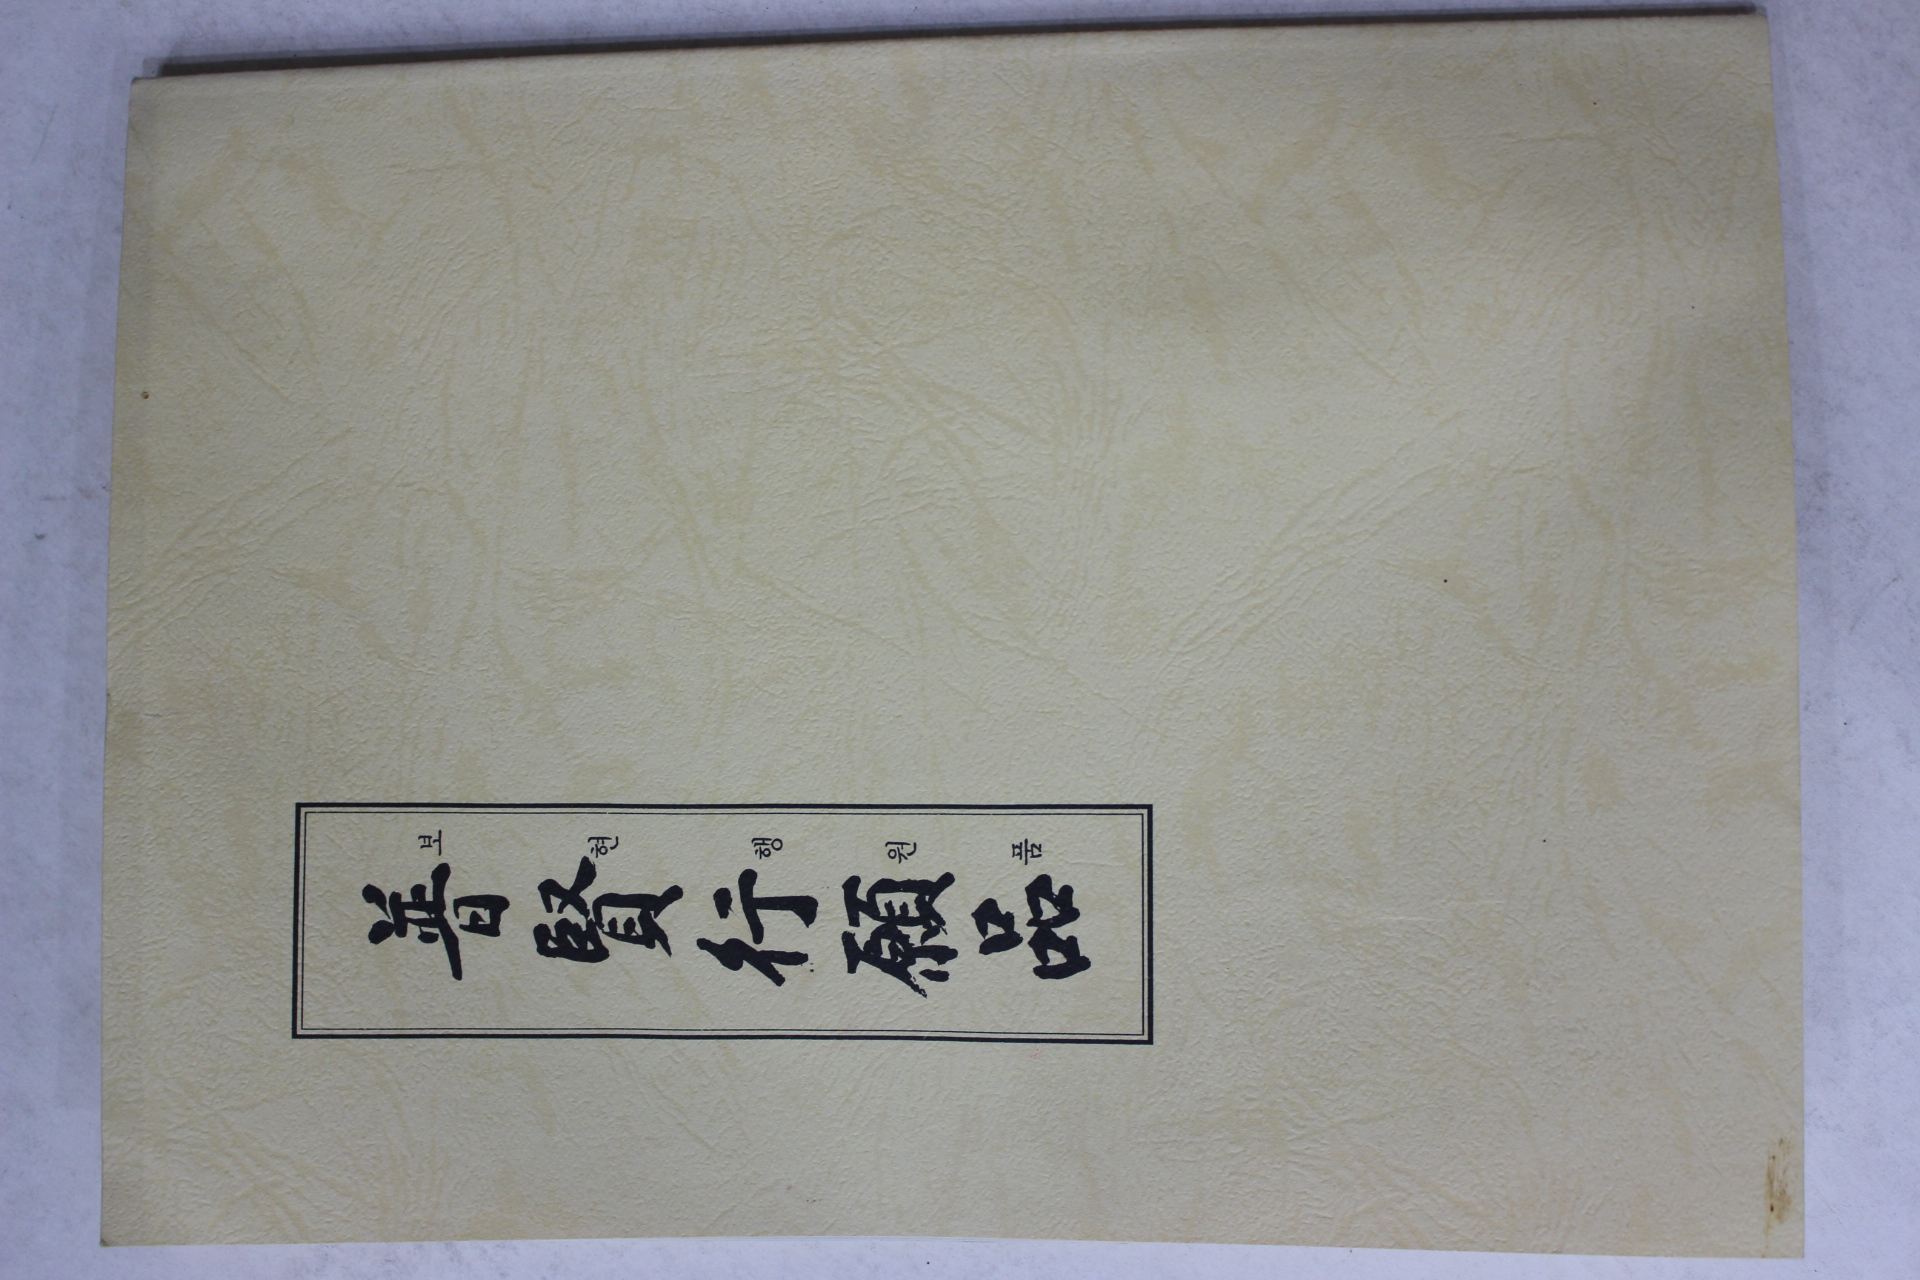 普賢行願品
보현행원품